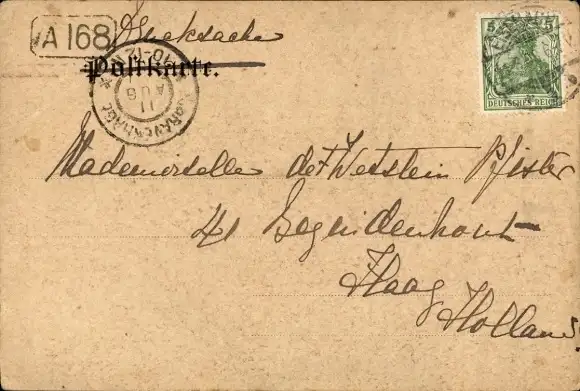 A 168
Drucksache
Postkarte.
'SGRAVENHAGE
10-12
11
AUG
5 5
DEUTSCHES REICH
Mademoiselle de Wetstein Pfister
41 Bezuidenhout
Haag
Holland.